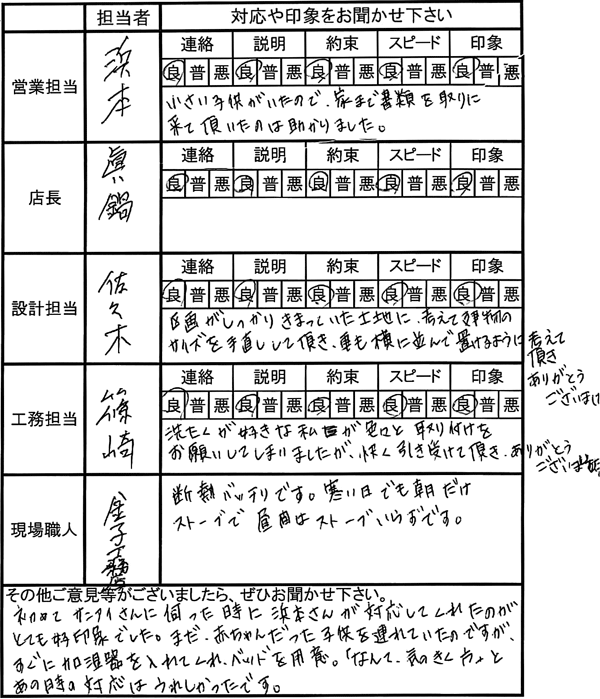 担当者 対応や印象をお聞かせ下さい
営業担当 浜本
連絡 説明 約束 スピード 印象
良 普 悪 良 普 悪 良 普 悪 良 普 悪 良 普 悪
小さい子供がいたので、家まで書類を取りに
来て頂いたのは助かりました。
店長 眞鍋
連絡 説明 約束 スピード 印象
良 普 悪 良 普 悪 良 普 悪 良 普 悪 良 普 悪
設計担当 佐々木
連絡 説明 約束 スピード 印象
良 普 悪 良 普 悪 良 普 悪 良 普 悪 良 普 悪
区画がしっかりきまっていた土地に、考えて建物の
サイズを手直しして頂き、車も横に並んで置けるように考えて
頂き
ありがとう
ございました
工務担当 篠崎
連絡 説明 約束 スピード 印象
良 普 悪 良 普 悪 良 普 悪 良 普 悪 良 普 悪
洗たくが好きな私が 色々と取り付けを
お願いしてしまいましたが、快く引き受けて頂き、ありがとう
ございました
現場職人 金子工務
断熱バッチリです。寒い日でも朝だけ
ストーブで昼間はストーブいらずです。
その他ご意見等がございましたら、ぜひお聞かせ下さい。
初めてサンアイさんに伺った時に浜本さんが対応してくれたのが
とても好印象でした。まだ、赤ちゃんだった子供を連れていたのですが、
すぐに加湿器を入れてくれ、ベッドを用意。「なんて、気のきく方」と
あの時の対応はうれしかったです。